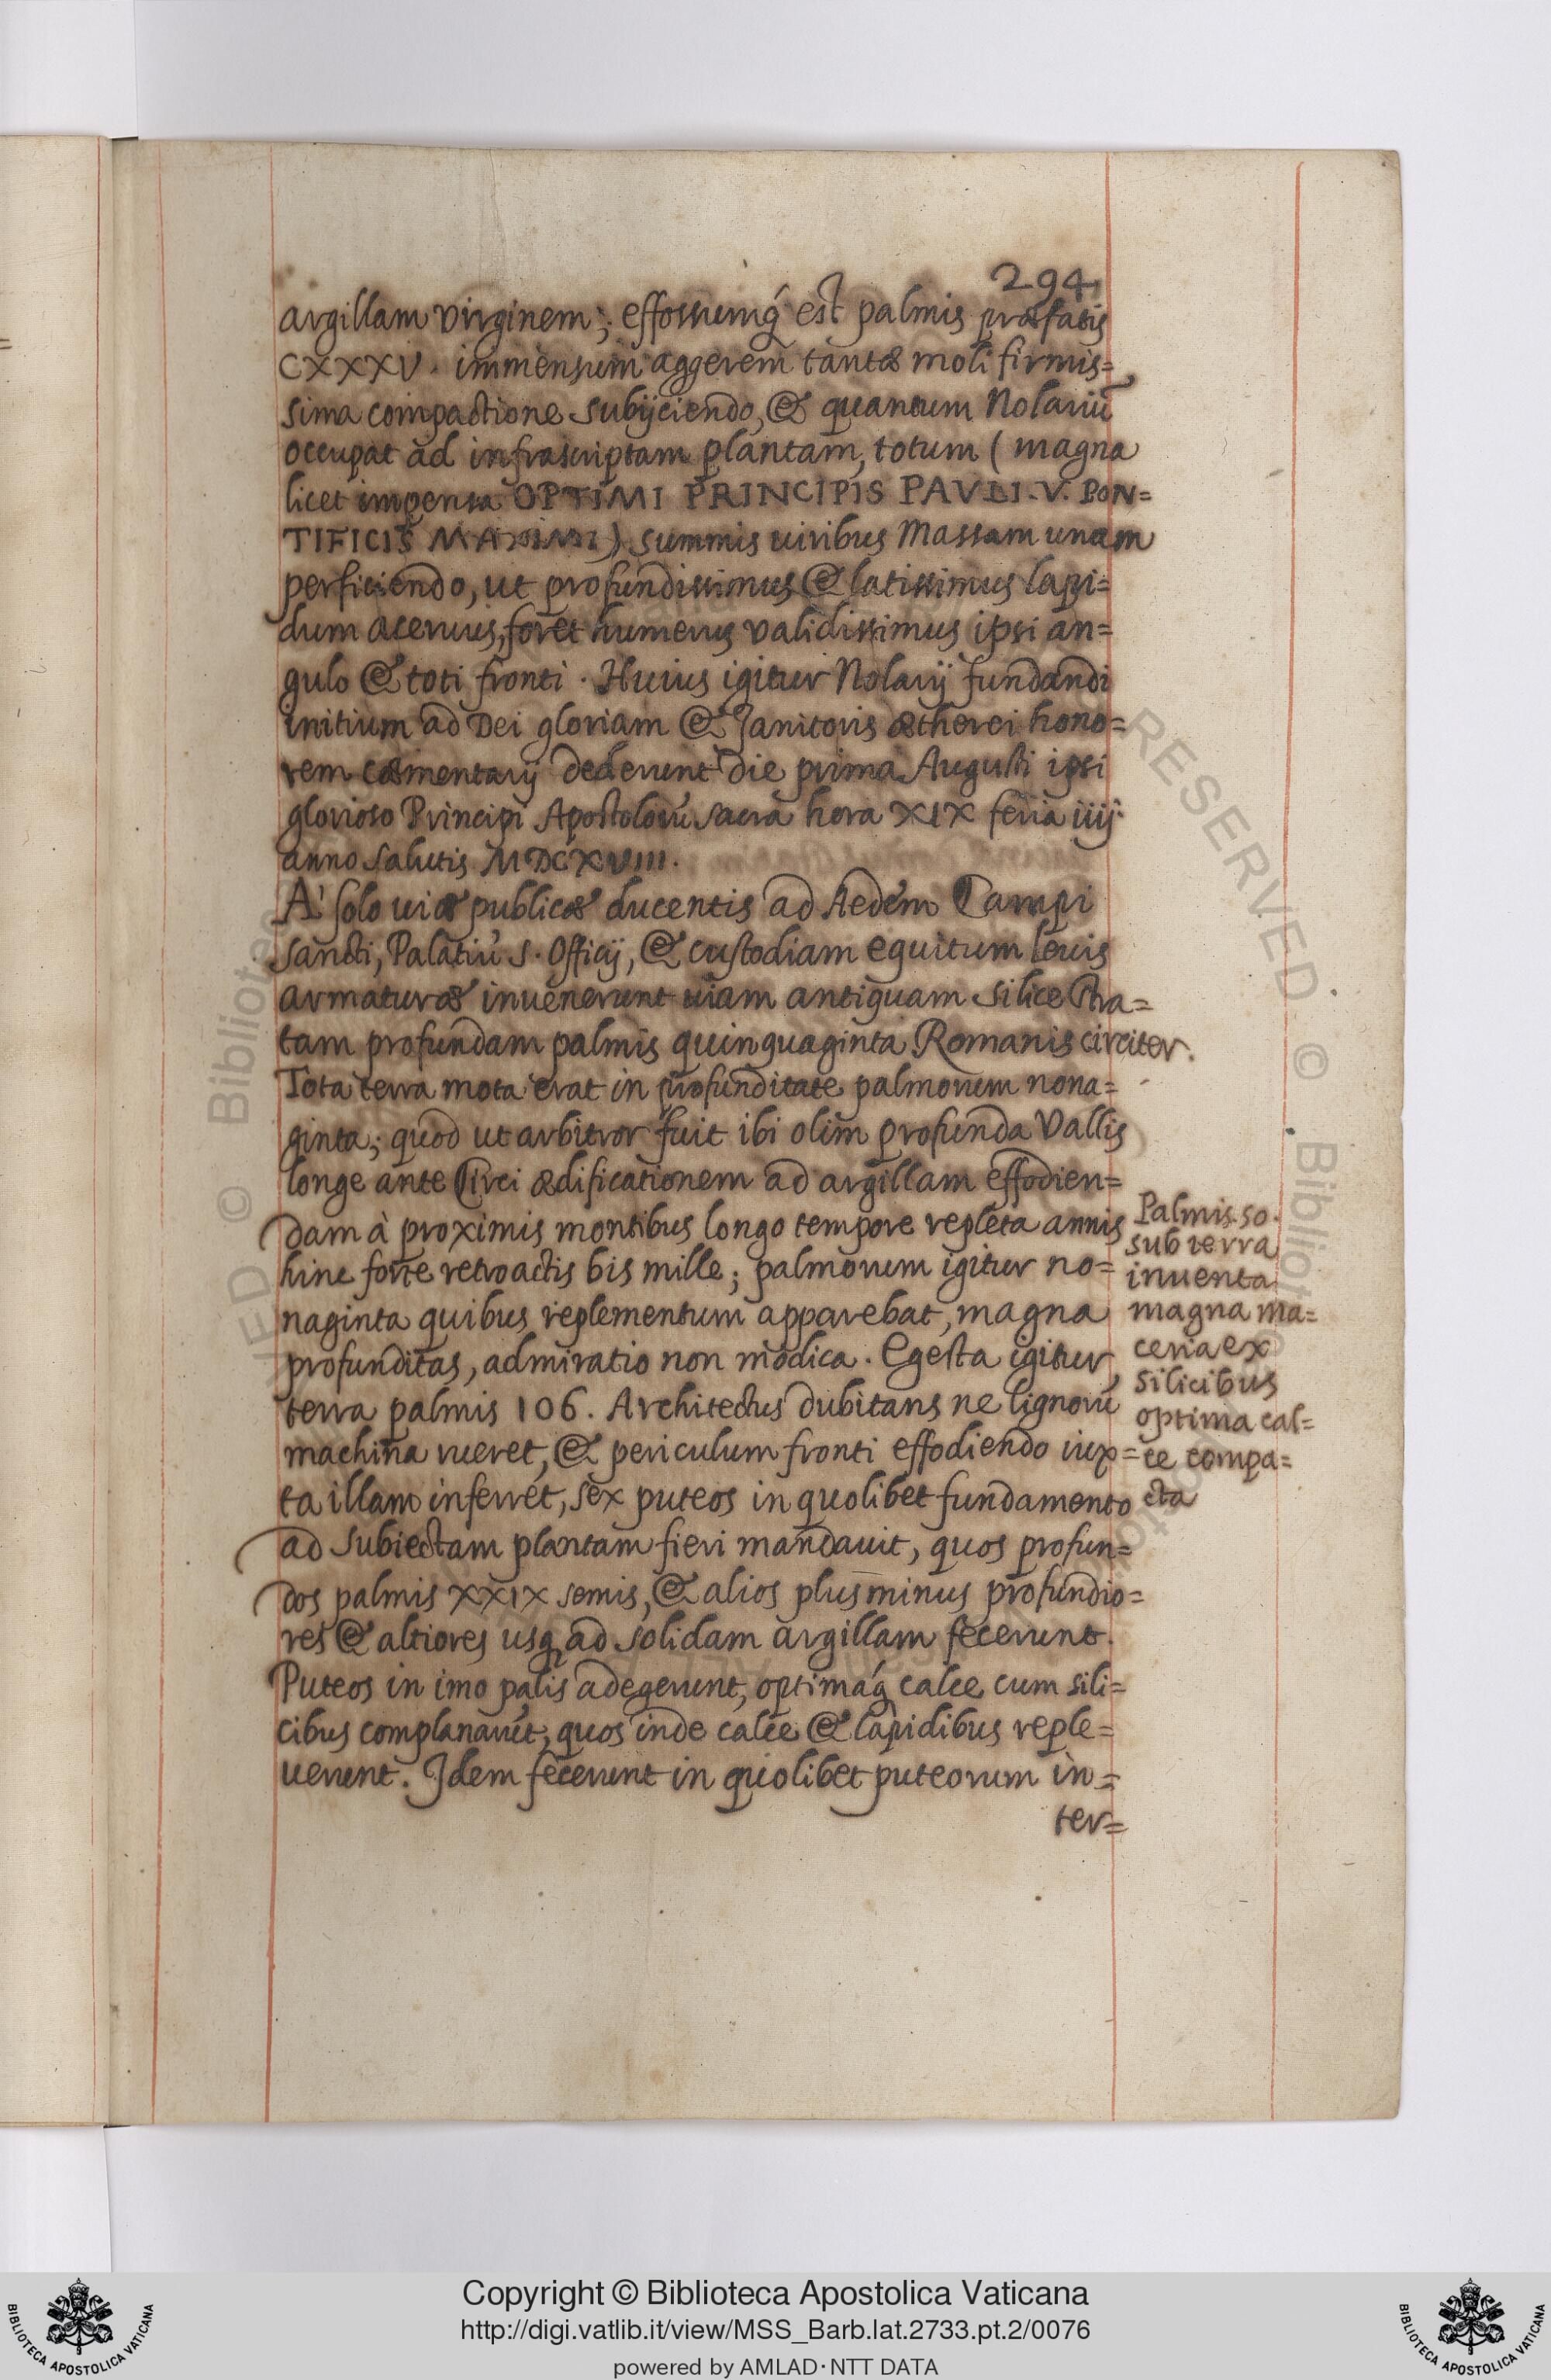 294
argillam virginem; effossumq́ est palmis præfatis
CXXXV. immensum aggerem tantæ moli firmis=
sima compactione subijciendo, & quantum Nolariũ
occupat ad infrascriptam plantam, totum ( magna
licet impensa OPTIMI PRINCIPIS PAVLI. V. PON=
TIFICIS MAXIMI ) summis uiribus Massam unam
perficiendo, ut profundissimus & latissimus lapi=
dum aceruus, foret humerus validissimus ipsi an=
gulo & toti fronti. Huius igitur Nolarij fundandi
initium ad Dei gloriam & Janitoris ætherei hono=
rem cæmentarij dederunt die prima Augusti ipsi
glorioso Principi Apostolorũ sacra hora XIX feria iiij.
anno salutis MDCXVIII.
A' solo uiæ publicæ ducentis ad Aedem Campi
sancti, Palatiũ S. Officij, & custodiam equitum leuis
armaturæ inuenerunt uiam antiquam silice stra=
tam profundam palmis quinquaginta Romanis circiter.
Tota terra mota erat in profunditate palmorum nona=
ginta; quod ut arbitror fuit ibi olim profunda Vallis
longe ante Circi ædificationem ad argillam effodien=
dam à proximis montibus longo tempore repleta annis
hinc forte retroactis bis mille; palmorum igitur no=
naginta quibus replementum apparebat, magna
profunditas, admiratio non modica. Egesta igitur
terra palmis 106. Architectus dubitans ne lignorũ
machina rueret, & periculum fronti effodiendo iux=
ta illam inferret, sex puteos in quolibet fundamento
ad subiectam plantam fieri mandauit, quos profun=
dos palmis XXIX semis, & alios plus minus profundio=
res & altiores usq ad solidam argillam fecerunt.
Puteos in imo palis adegerunt, optimaq́ calce cum sili=
cibus complanarũt, quos inde calce & lapidibus reple=
uerunt. Idem fecerunt in quolibet puteorum in=
ter=
Palmis 50.
sub terra
inuenta
magna ma=
ceria ex
silicibus
optima cal=
ce compa=
cta
Copyright © Biblioteca Apostolica Vaticana
http://digi.vatlib.it/view/MSS_Barb.lat.2733.pt.2/0076
powered by AMLAD·NTT DATA
BIBLIOTECA APOSTOLICA VATICANA
BIBLIOTECA APOSTOLICA VATICANA